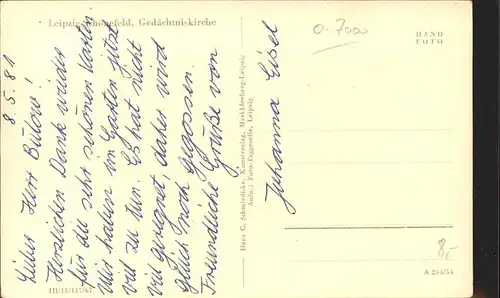 Leipzig-Schönefeld, Gedächtniskirche
8.5.81
Lieber Herr Bülow!
Herzlichen Dank wieder
für die sehr schönen Karten.
Wir haben im Garten jetzt
viel zu tun. Es hat nicht
viel geregnet, daher wird
gleich noch gegossen.
Freundliche Grüße von
Johanna Eisel
III/18/117/67
Hans C. Schmiedicke, Kunstverlag, Markkleeberg-Leipzig
Aufn.: Foto-Taggeselle, Leipzig
0-7000
HAND
FOTO
8,-
A 214/54